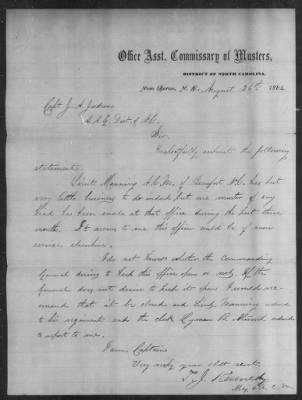 Office Asst. Commissary of Musters,
DISTRICT OF NORTH CAROLINA,
New Berne, N. C. August 26th 1864
Capt J. A. Judson
A.A.G. Dist of N.C.
Sir
Respectfully submit the following
statement.
Lieut Manning A.C.M. of Beaufort N.C. has but
very little business to do indeed but one muster of any
kind has been made at that office during the past three
month. It seems to me this officer could be of more
service elsewhere.
I do not know whether the commanding
General desires to keep this office open or not. If the
General does not desire to keep it open I would rec-
ommend that it be closed and Lieut Manning ordered
to his regiment and the clerk Cyman A. ordered
to report to me.
I am Captain
Very resply your obt servt.
T. J. Kennedy